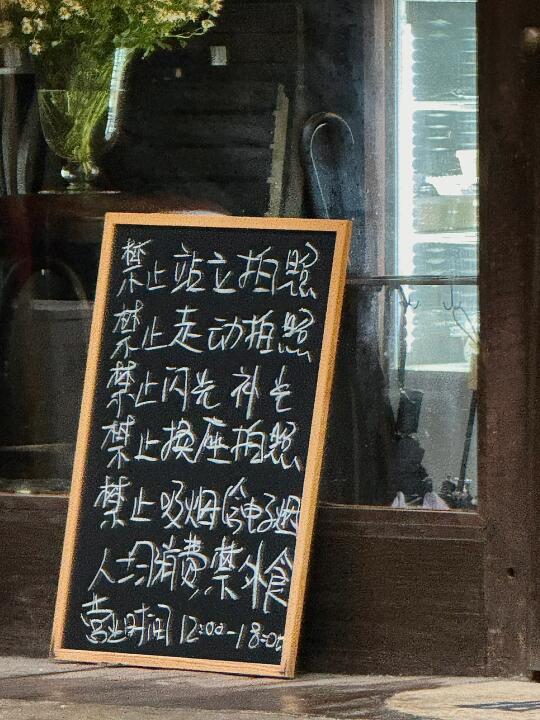 禁止站立拍照
禁止走动拍照
禁止闪光 补光
禁止换座拍照
禁止吸烟含电子烟
人均消费禁外食
营业时间 12:00-18:00